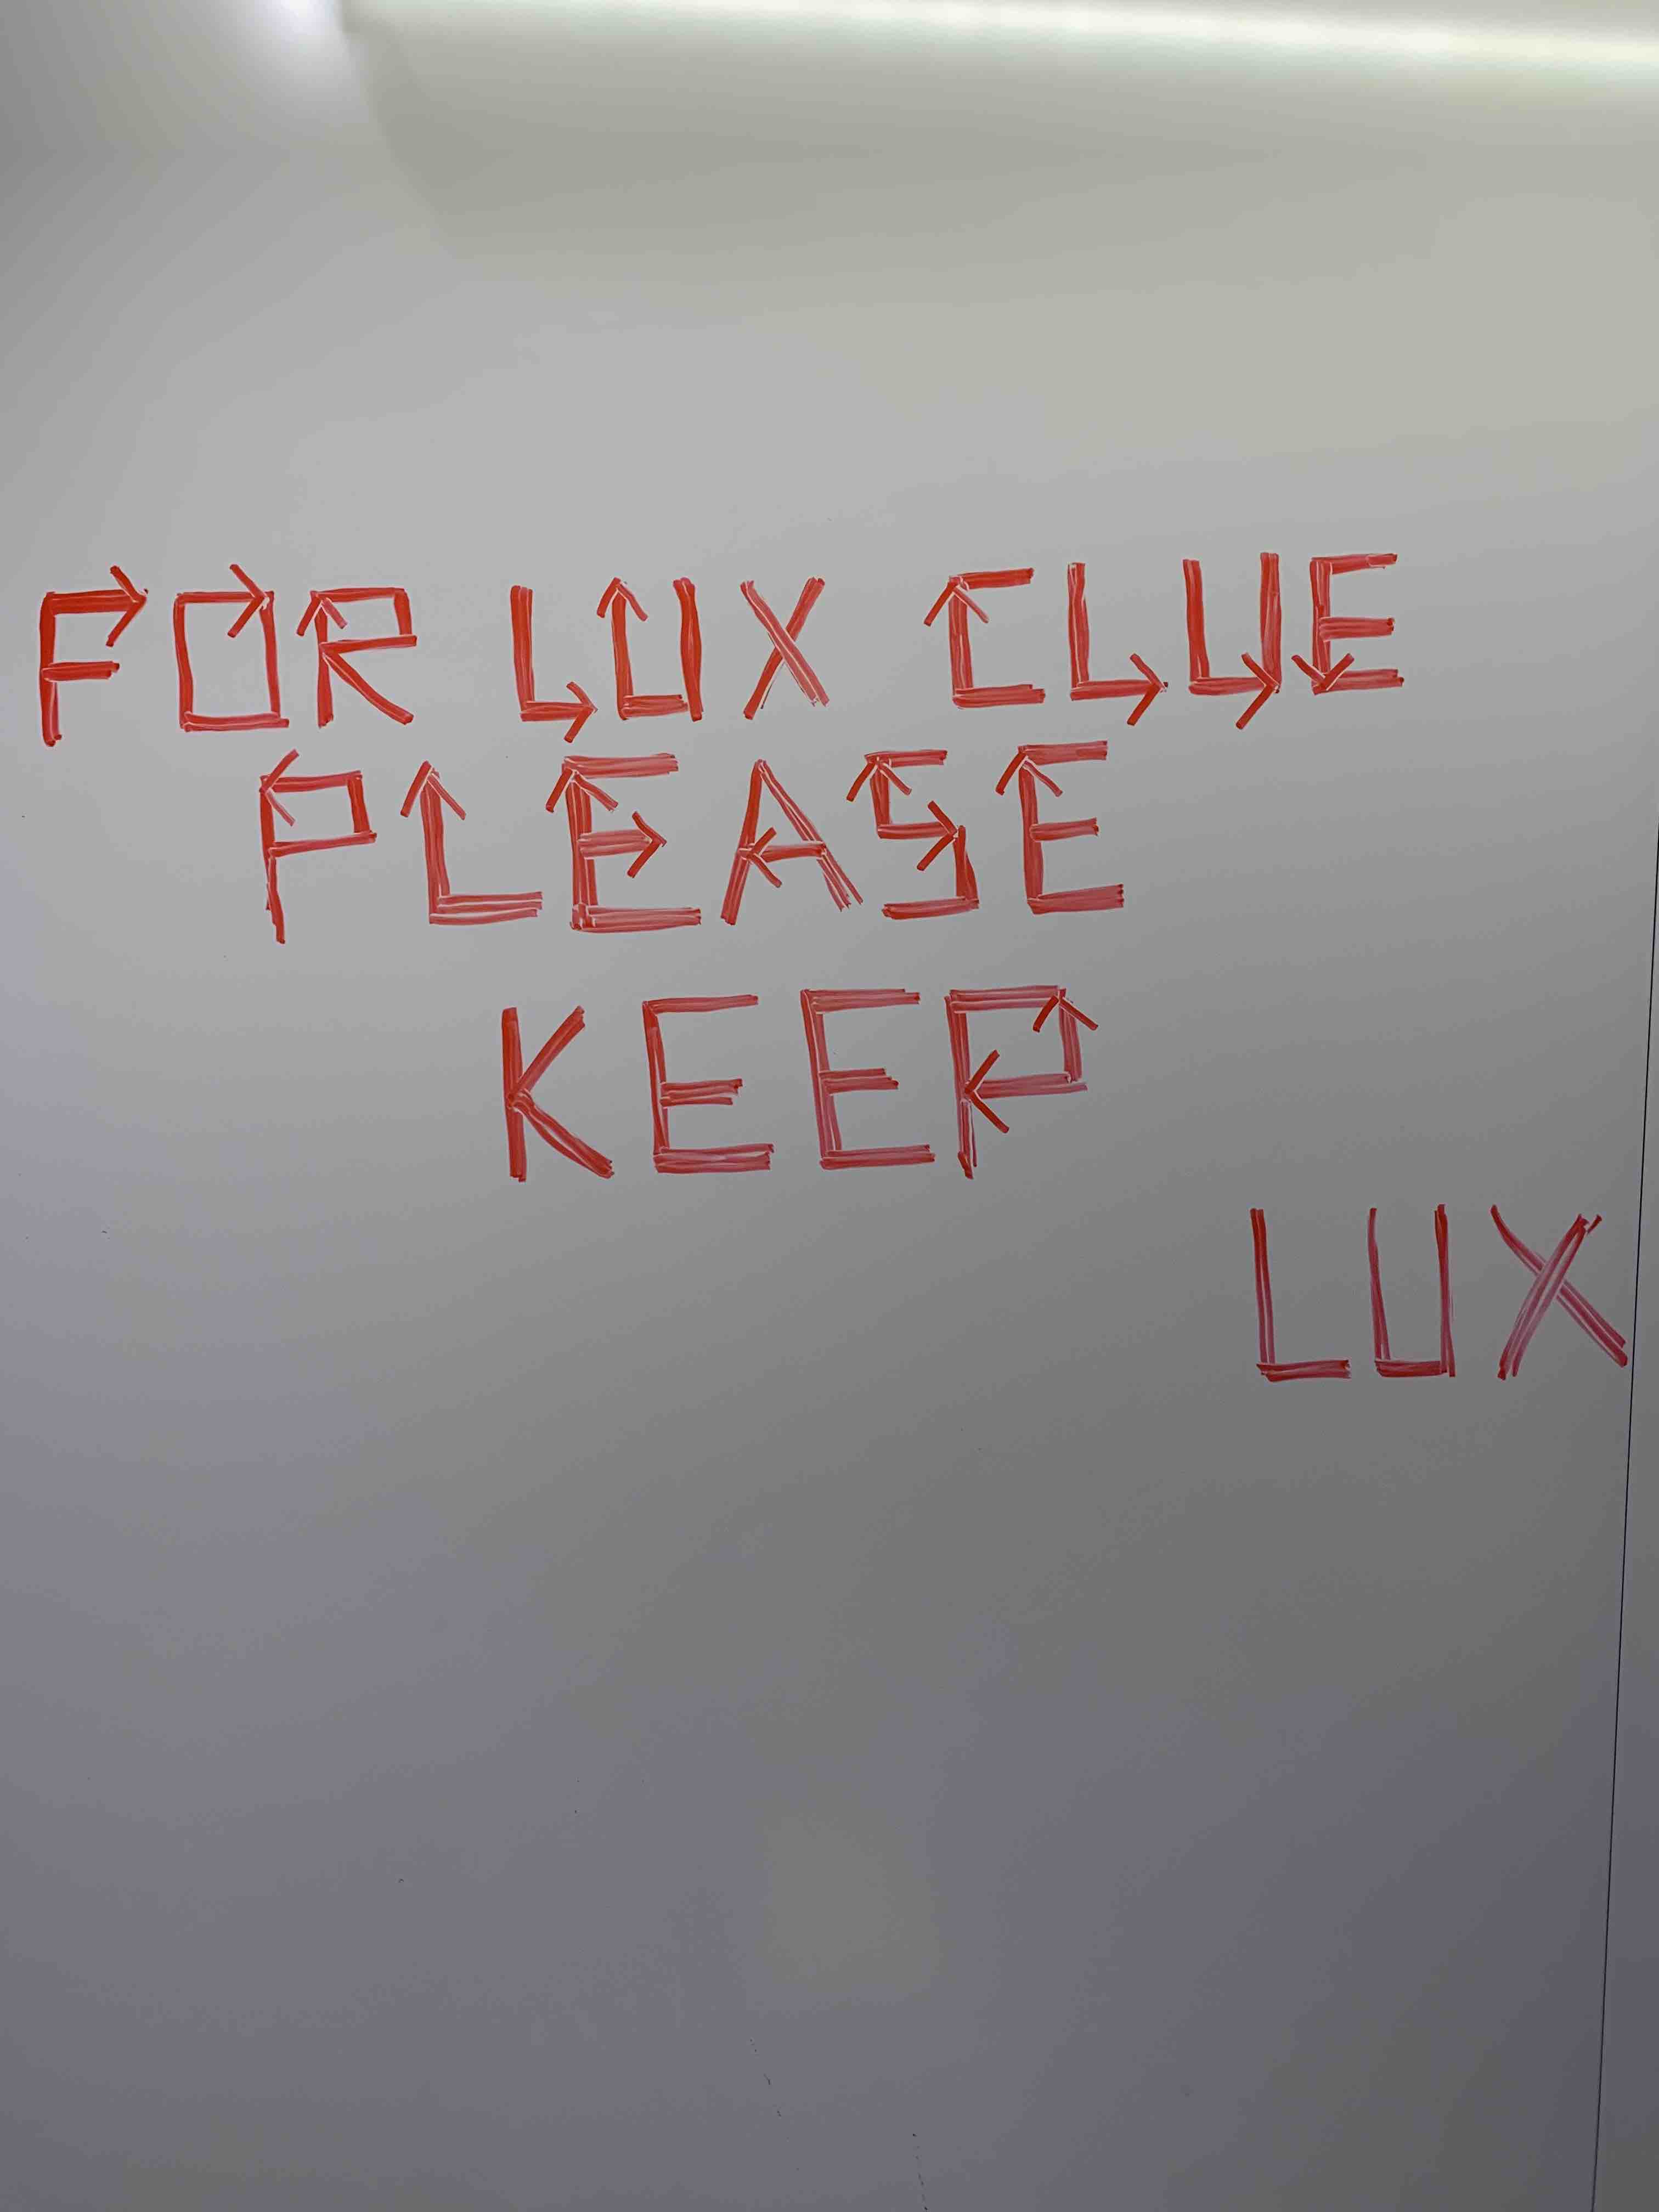 FOR LUX CLUE
PLEASE
KEEP
LUX